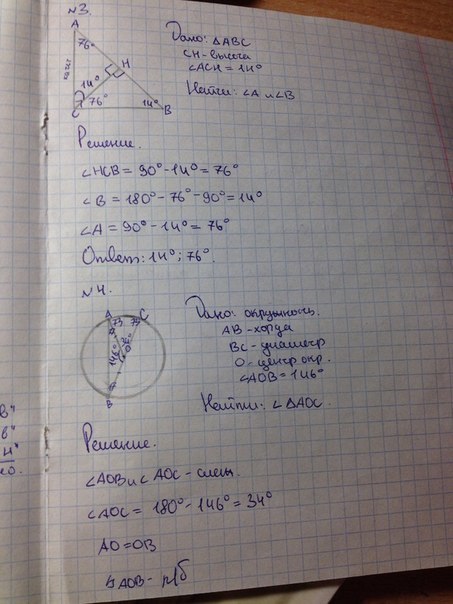 N3.
A
76°
катет
H
14°
76°
14°
C
B
Дано: ΔABC
CH - высота
∠ACH = 14°
Найти: ∠A и ∠B
Решение.
∠HCB = 90° - 14° = 76°
∠B = 180° - 76° - 90° = 14°
∠A = 90° - 14° = 76°
Ответ: 14°; 76°.
N4.
A
C
73
73
146°
B
Дано: окружность.
AB - хорда
BC - диаметр
O - центр окр.
∠AOB = 146°
Найти: ∠ ΔAOC.
Решение.
∠AOB и ∠AOC - смеж.
∠AOC = 180° - 146° = 34°
AO = OB
ΔAOB - р/б
в"
в"
н"
но.